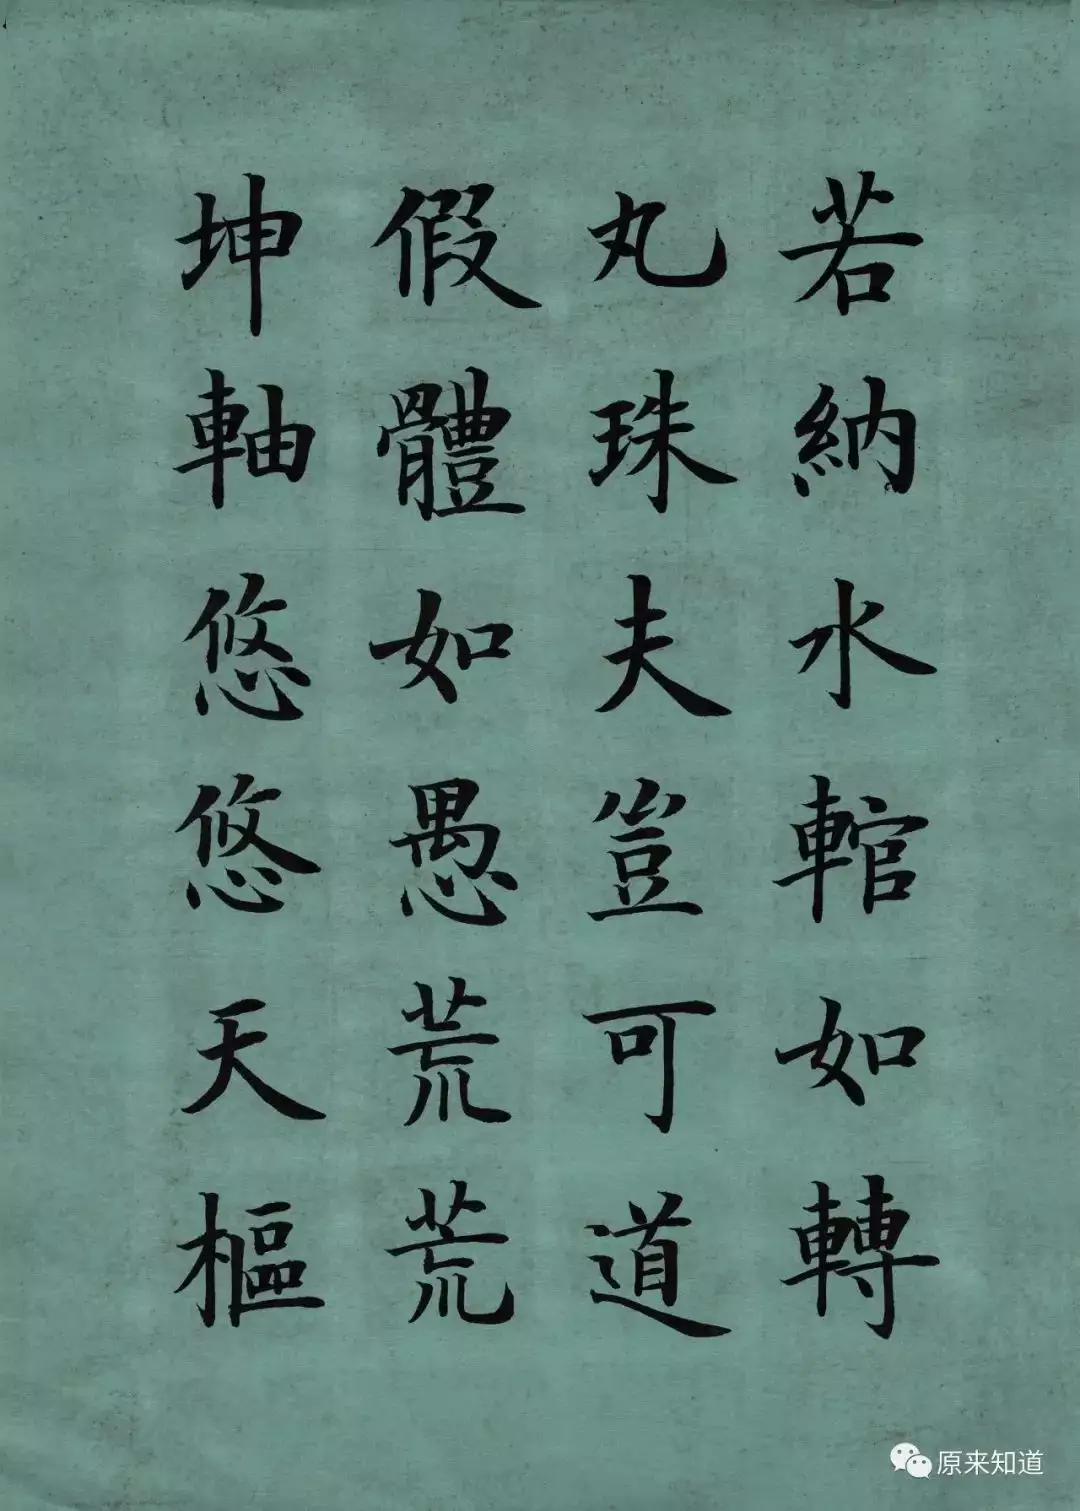 若納水輨如轉
丸珠夫豈可道
假體如愚荒荒
坤軸悠悠天樞
原来知道